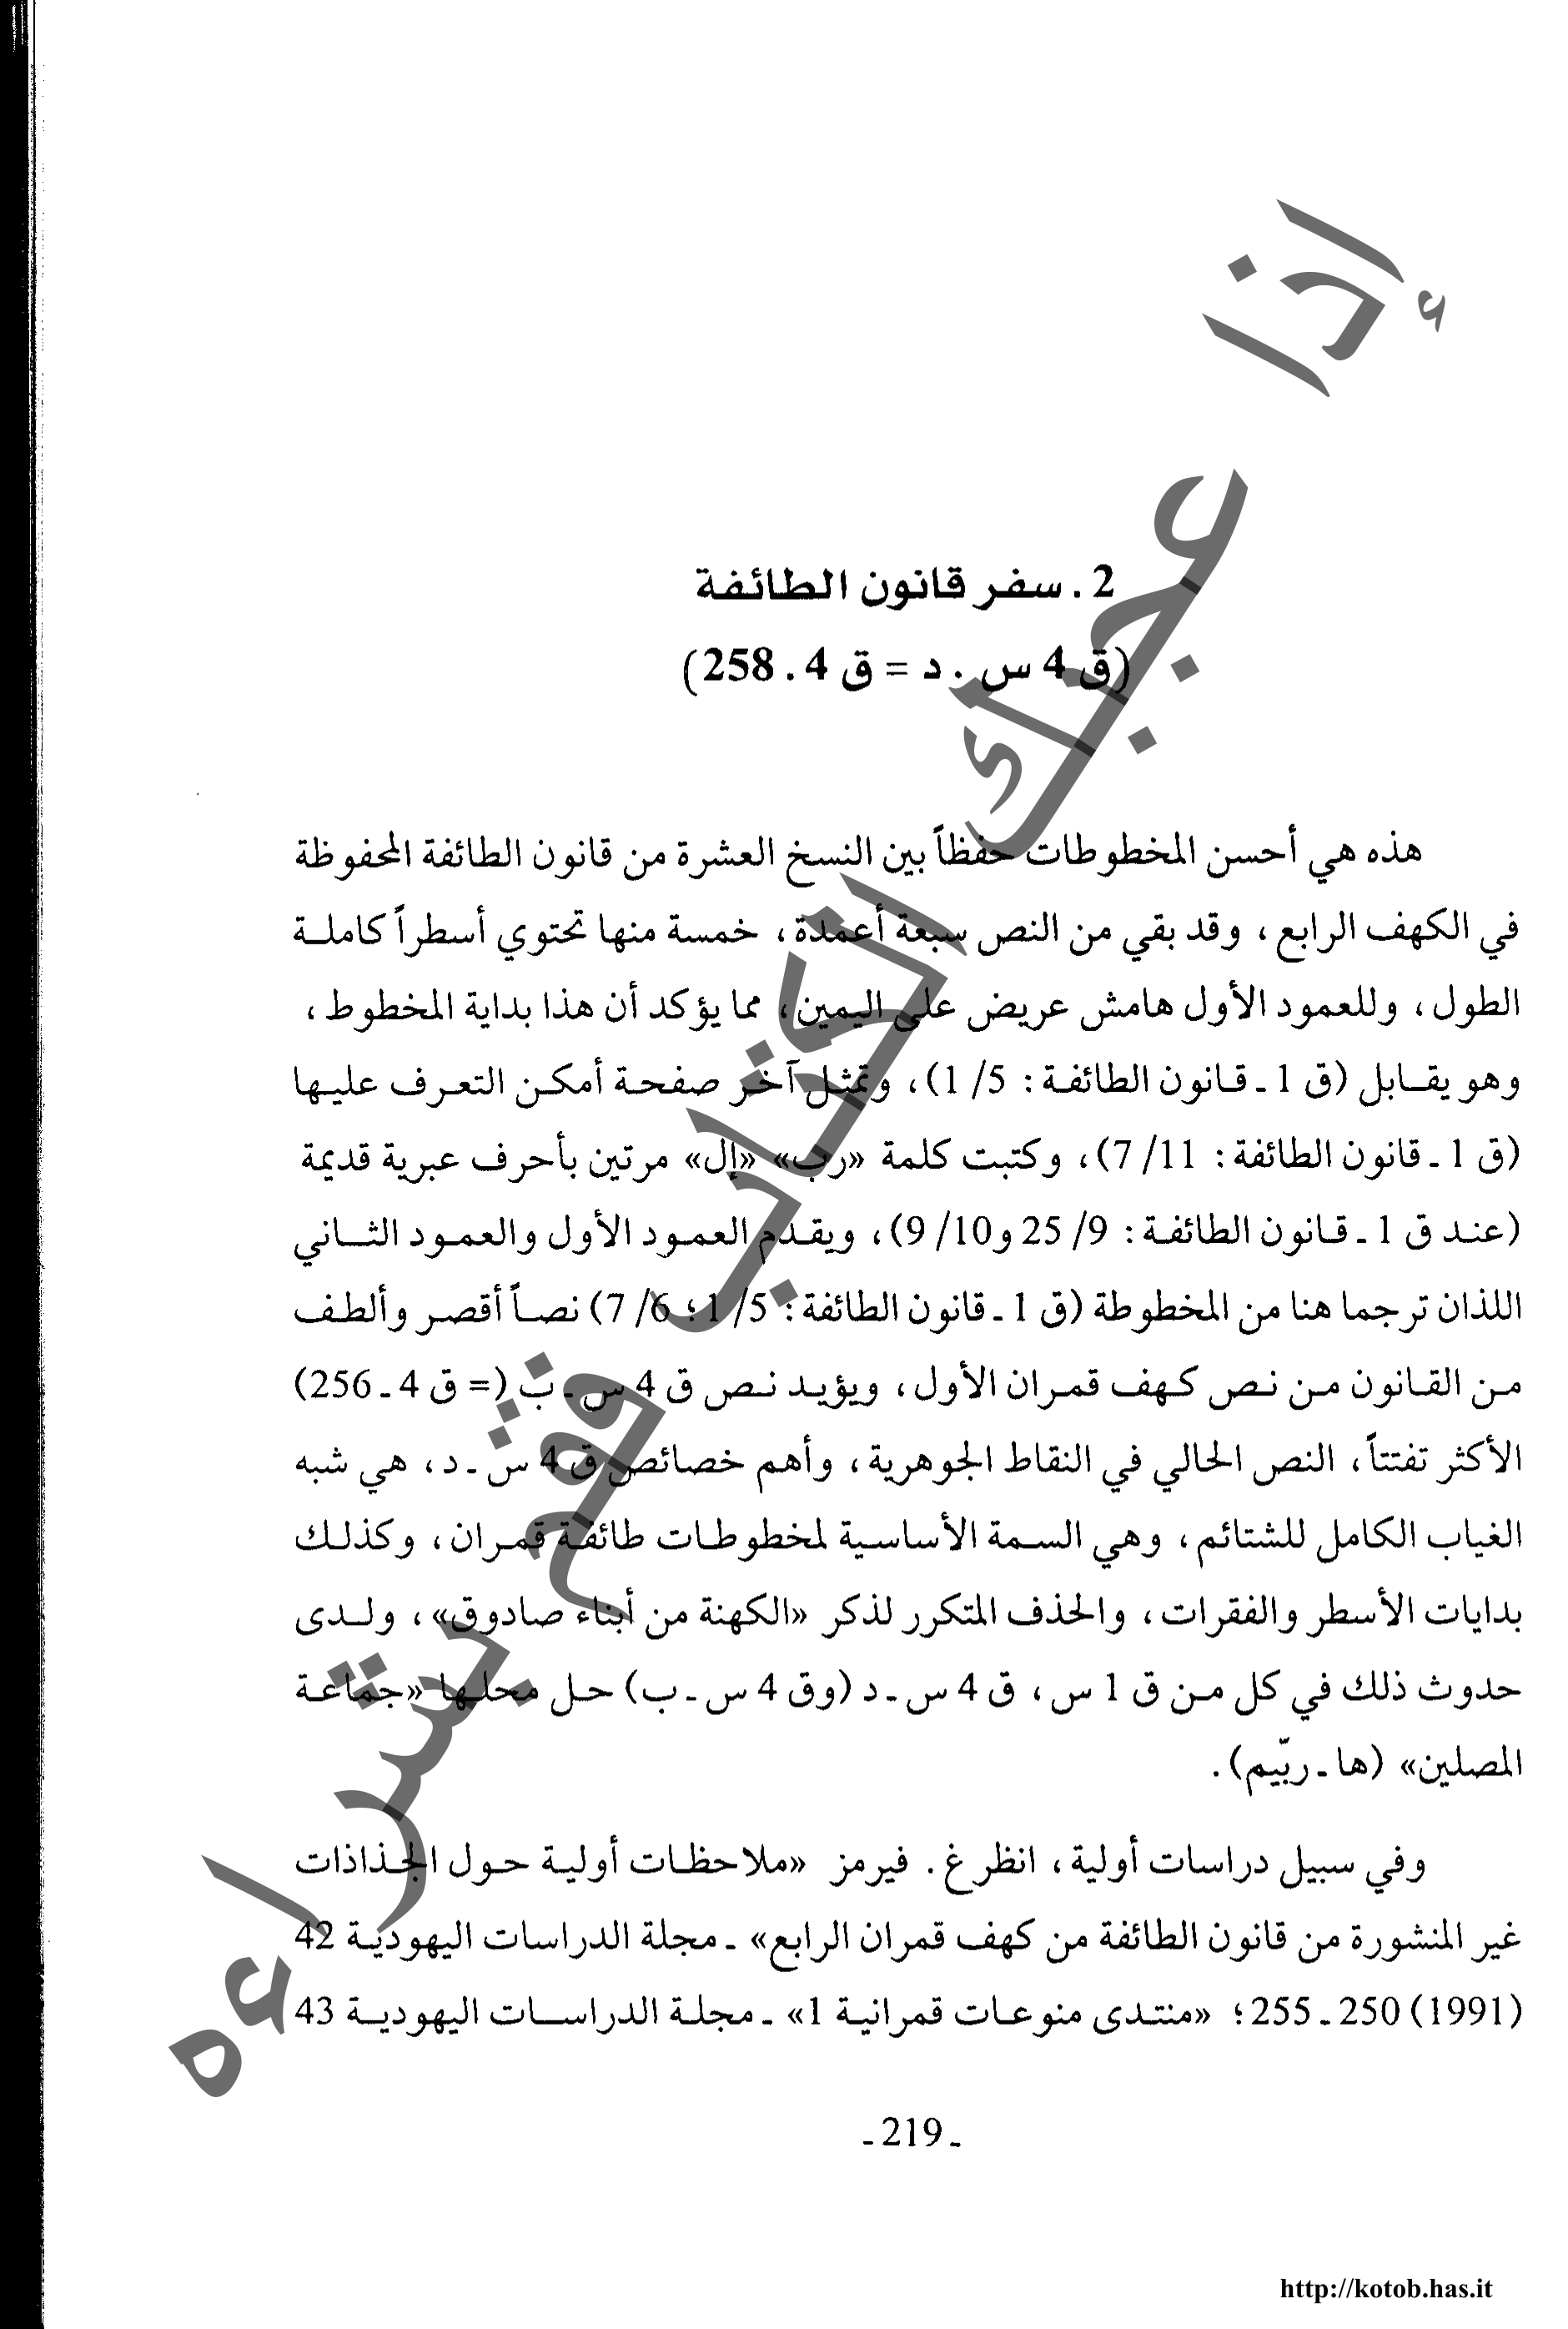 2 . سفر قانون الطائفة
(ق 4 س . د = ق 4 . 258)
هذه هي أحسن المخطوطات حفظاً بين النسخ العشرة من قانون الطائفة المحفوظة
في الكهف الرابع، وقد بقي من النص سبعة أعمدة، خمسة منها تحتوي أسطراً كاملة
الطول، وللعمود الأول هامش عريض على اليمين، مما يؤكد أن هذا بداية المخطوط،
وهو يقابل (ق 1 ـ قانون الطائفة: 5/ 1)، وتمثل آخر صفحة أمكن التعرف عليها
(ق 1 ـ قانون الطائفة: 11/ 7)، وكتبت كلمة «رب» «إل» مرتين بأحرف عبرية قديمة
(عند ق 1 ـ قانون الطائفة: 9/ 25 و10/ 9)، ويقدم العمود الأول والعمود الثاني
اللذان ترجما هنا من المخطوطة (ق 1 ـ قانون الطائفة: 5/ 1؛ 6/ 7) نصاً أقصر وألطف
من القانون من نص كهف قمران الأول، ويؤيد نص ق 4 س ـ ب (= ق 4 ـ 256)
الأكثر تفتتاً، النص الحالي في النقاط الجوهرية، وأهم خصائص ق 4 س ـ د، هي شبه
الغياب الكامل للشتائم، وهي السمة الأساسية لمخطوطات طائفة قمران، وكذلك
بدايات الأسطر والفقرات، والحذف المتكرر لذكر «الكهنة من أبناء صادوق»، ولدى
حدوث ذلك في كل من ق 1 س، ق 4 س ـ د (وق 4 س ـ ب) حل محلها «جماعة
المصلين» (ها ـ ربّيم).
وفي سبيل دراسات أولية، انظر غ. فيرمز «ملاحظات أولية حول الجذاذات
غير المنشورة من قانون الطائفة من كهف قمران الرابع» ـ مجلة الدراسات اليهودية 42
(1991) 250 ـ 255؛ «منتدى منوعات قمرانية 1» ـ مجلة الدراسات اليهودية 43
ـ 219 ـ
http://kotob.has.it
أذا عجبك الكتاب قم بشراءه